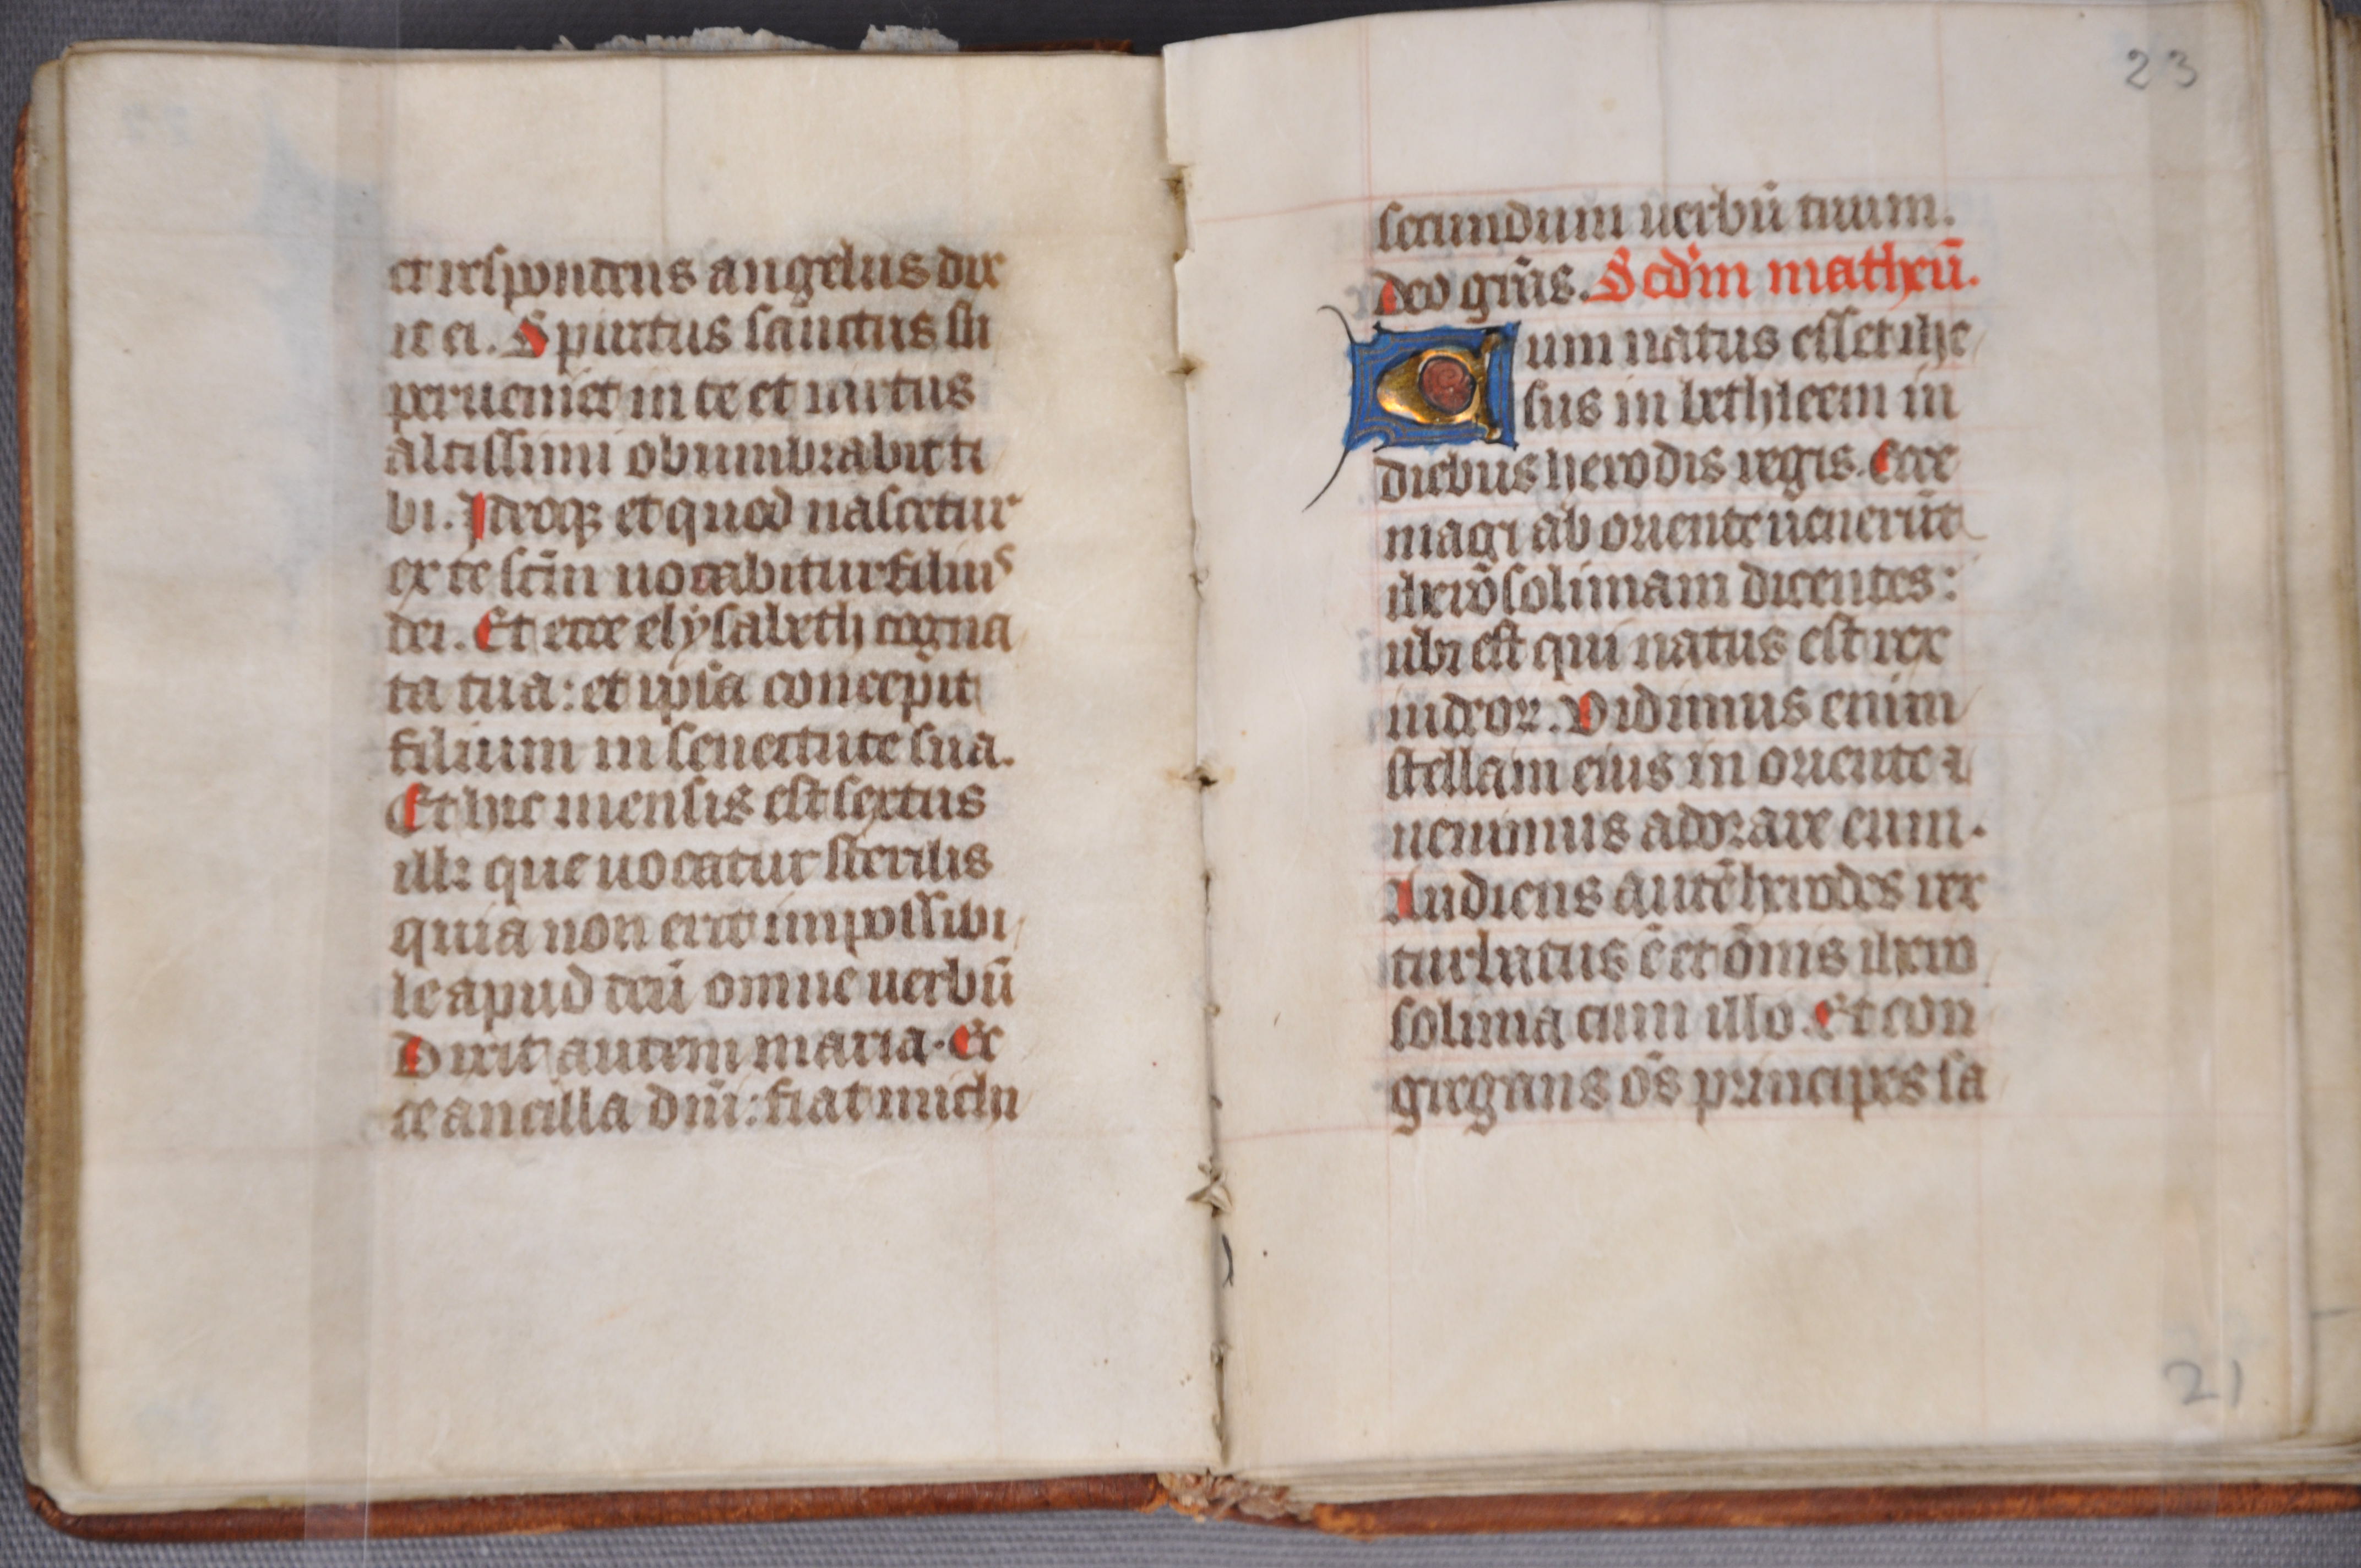 et respondens angelus dix
it ei. Spiritus sanctus su
perueniet in te et uirtus
altissimi obumbrabit ti
bi. Ideoqꝫ et quod nascetur
ex te sc̄m uocabitur filius
dei. Et ecce elysabeth cogna
ta tua: et ipsa concepit
filium in senectute sua.
Et hic mensis est sextus
illi que uocatur sterilis
quia non erit impossibi
le apud deū omne uerbū
Dixit autem maria. Ec
ce ancilla dn̄i: fiat michi
23
secundum uerbū tuum.
Deo gr̄as. Scdm matheū.
Cum natus esset ihe
sus in bethleem in
diebus herodis regis. Ecce
magi ab oriente uenerūt
iherosolimam dicentes:
ubi est qui natus est rex
iudeoꝝ. Vidimus enim
stellam eius in oriente ⁊
uenimus adorare eum.
Audiens autē herodes rex
turbatus ē et om̄is ihero
solima cum illo. Et con
gregans om̄s principes sa
21